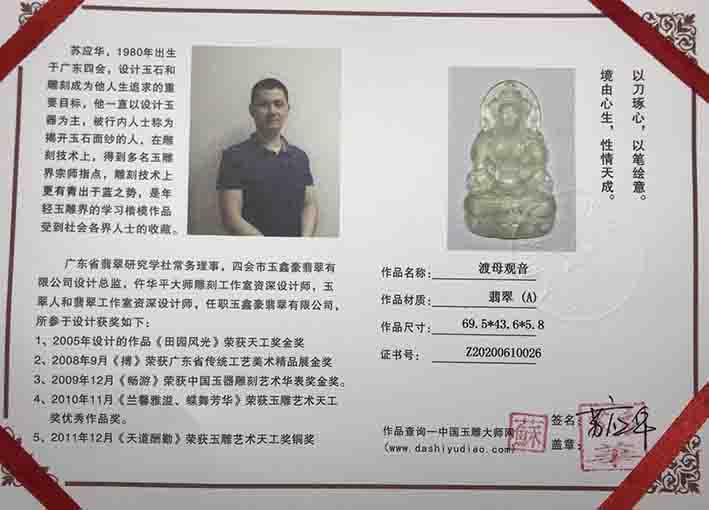 苏应华，1980年出生
于广东四会，设计玉石和
雕刻成为他人生追求的重
要目标，他一直以设计玉
器为主，被行内人士称为
揭开玉石面纱的人，在雕
刻技术上，得到多名玉雕
界宗师指点，雕刻技术上
更有青出于蓝之势，是年
轻玉雕界的学习楷模作品
受到社会各界人士的收藏。
广东省翡翠研究学社常务理事，四会市玉鑫豪翡翠有
限公司设计总监，仵华平大师雕刻工作室资深设计师，玉
翠人和翡翠工作室资深设计师，任职玉鑫豪翡翠有限公司，
所参于设计获奖如下：
1、2005年设计的作品《田园风光》荣获天工奖金奖
2、2008年9月《搏》荣获广东省传统工艺美术精品展金奖
3、2009年12月《畅游》荣获中国玉器雕刻艺术华表奖金奖。
4、2010年11月《兰馨雅溢、蝶舞芳华》荣获玉雕艺术天工
奖优秀作品奖。
5、2011年12月《天道酬勤》荣获玉雕艺术天工奖铜奖
以刀琢心，以笔绘意。
境由心生，性情天成。
作品名称：渡母观音
作品材质：翡翠（A）
作品尺寸：69.5*43.6*5.8
证书号：Z20200610026
作品查询一中国玉雕大师网
(www.dashiyudiao.com)
蘇
签名：苏应华
盖章：